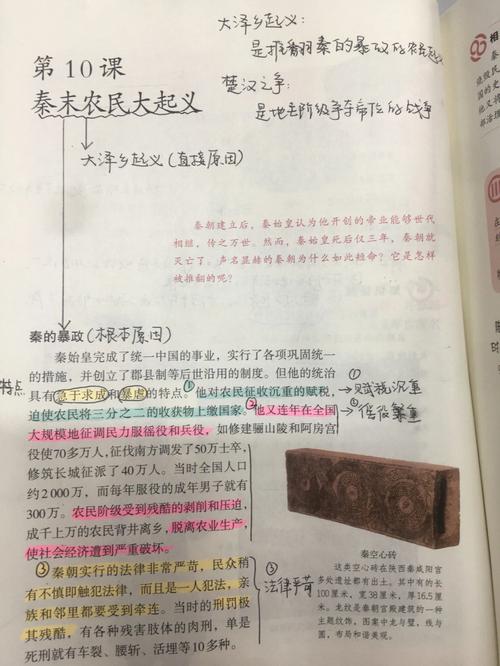 大泽乡起义:
是推翻秦的暴政的农民起义
第10课
秦末农民大起义
楚汉之争:
是地主阶级争夺帝位的战争
大泽乡起义(直接原因)
秦朝建立后,秦始皇认为他开创的帝业能够世代
相继,传之万世。然而,秦始皇死后仅三年,秦朝就
灭亡了。声名显赫的秦朝为什么如此短命?它是怎样
被推翻的呢?
秦的暴政(根本原因)
秦始皇完成了统一中国的事业,实行了各项巩固统一
的措施,并创立了郡县制等后世沿用的制度。但他的统治
特点
具有急于求成和暴虐的特点。①他对农民征收沉重的赋税,
①→赋税沉重
迫使农民将三分之二的收获物上缴国家。②他又连年在全国
②→徭役繁重
大规模地征调民力服徭役和兵役。如修建骊山陵和阿房宫
役使70多万人,征伐南方调发了50万士卒,
修筑长城征派了40万人。当时全国人口
约2 000万,而每年服役的成年男子就有
300万。农民阶级受到残酷的剥削和压迫,
成千上万的农民背井离乡,脱离农业生产,
使社会经济遭到严重破坏。
③秦朝实行的法律非常严苛,民众稍
有不慎即触犯法律,而且是一人犯法,亲
族和邻里都要受到牵连。当时的刑罚极
其残酷,有各种残害肢体的肉刑,单是
死刑就有车裂、腰斩、活埋等10多种。
③
法律严苛
秦空心砖
这类空心砖在陕西秦咸阳宫
多处遗址都有出土。其中有的长
100厘米,宽38厘米,厚16.5厘
米。龙纹是秦朝宫殿建筑的一种
主题纹饰,图案中龙与璧,线与
圆,布局和谐美观。
相
秦